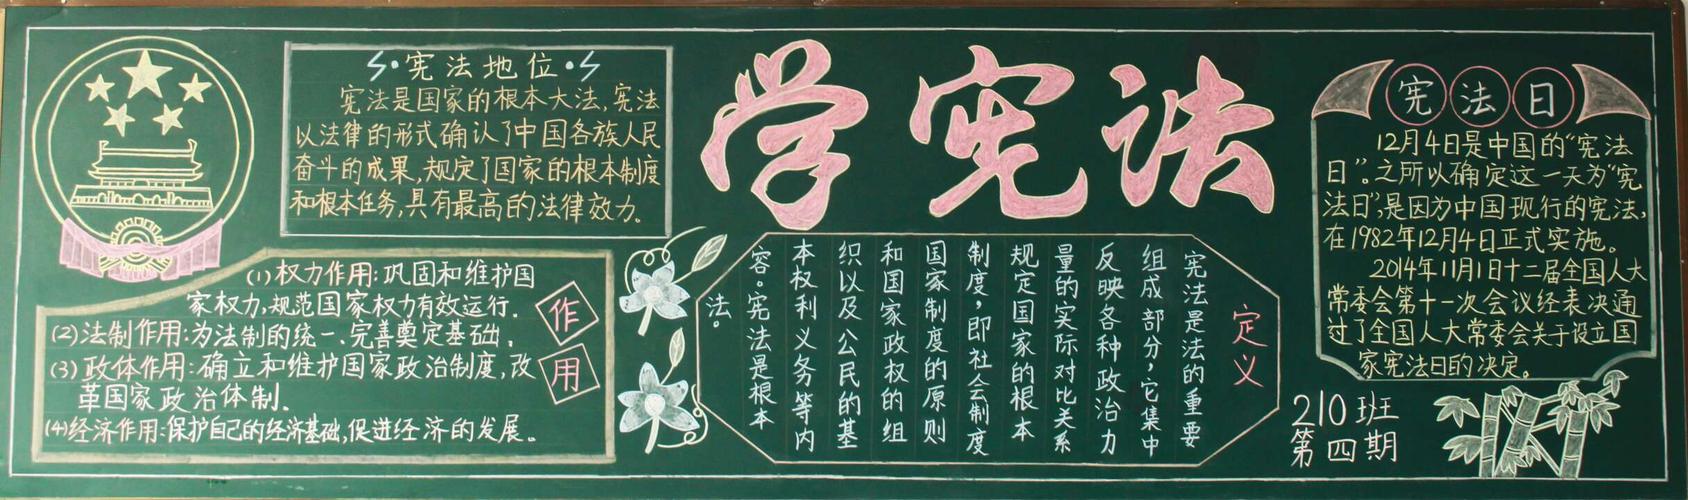 宪法地位
宪法是国家的根本大法,宪法
以法律的形式确认了中国各族人民
奋斗的成果,规定了国家的根本制度
和根本任务,具有最高的法律效力.
(1)权力作用:巩固和维护国
家权力,规范国家权力有效运行.
(2)法制作用:为法制的统一、完善奠定基础.
(3)政体作用:确立和维护国家政治制度,改
革国家政治体制.
(4)经济作用:保护自己的经济基础,促进经济的发展。
作
用
学宪法
定义
宪法是法的重要
组成部分,它集中
反映各种政治力
量的实际对比关系
规定国家的根本
制度,即社会制度
国家制度的原则
和国家政权的组
织以及公民的基
本权利义务等内
容。宪法是根本
法。
宪法日
12月4日是中国的“宪法
日”。之所以确定这一天为“宪
法日”,是因为中国现行的宪法,
在1982年12月4日正式实施。
2014年11月1日十二届全国人大
常委会第十一次会议经表决通
过了全国人大常委会关于设立国
家宪法日的决定。
210班
第四期